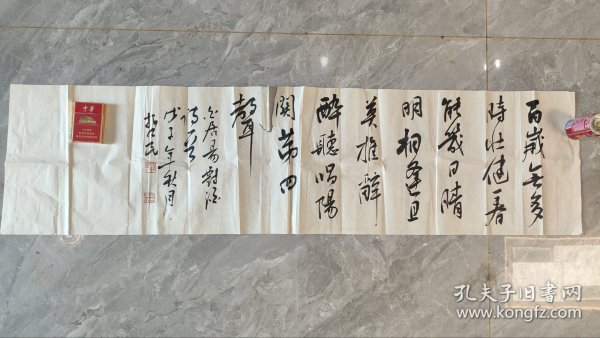 百歲無多
時壯健一春
能幾日晴
明相逢且
莫推辭
醉聽唱陽
關第四
聲
白居易對酒
詩一首
戊子年秋月
中华
孔夫子旧书网
www.kongfz.com